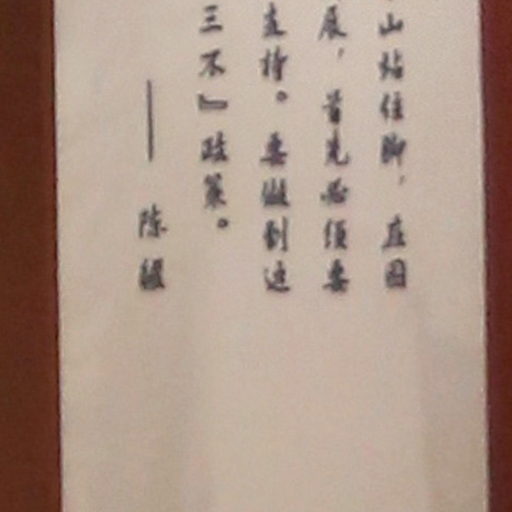 山站住脚，在固
展，首先必须要
支持。要做到这
三不』政策。
——陈毅